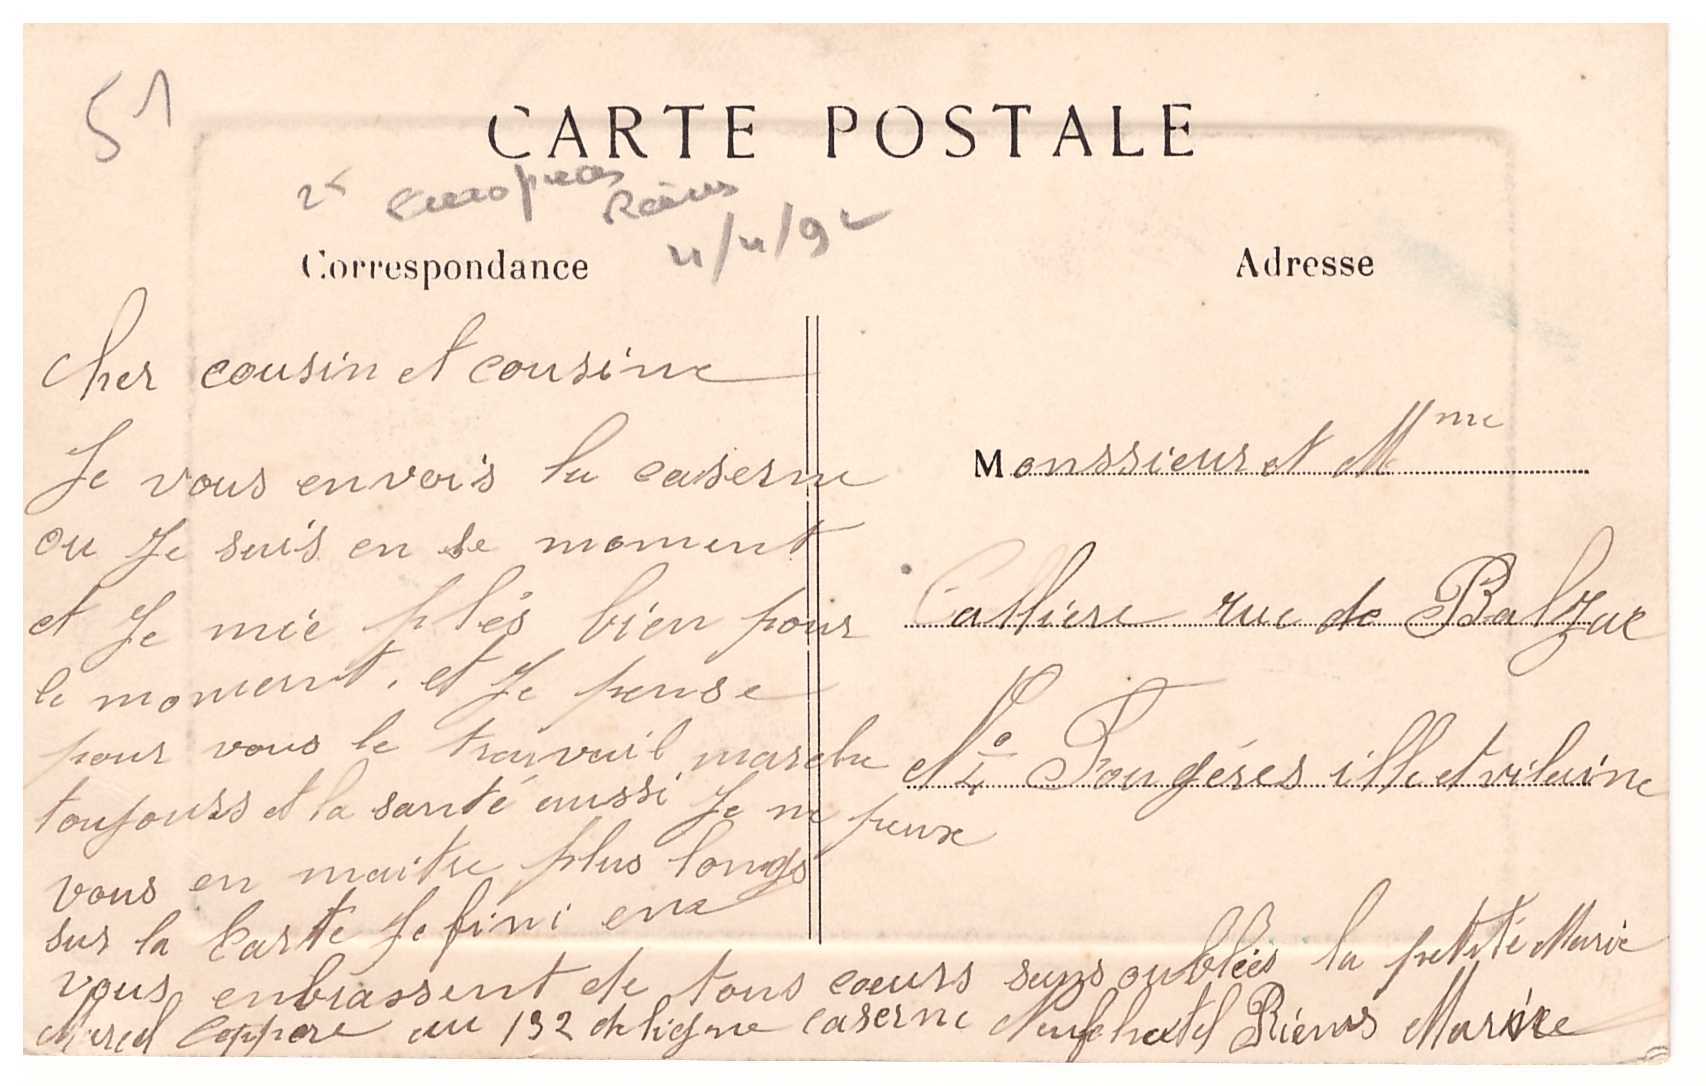 51
CARTE POSTALE
Reims
4/4/92
Correspondance
Adresse
Cher cousin et cousine
Je vous envois la caserne
ou Je suis en se moment
et Je mie plés bien pour
le moment. et Je pense
pour vous le travail marche
toujours et la santé aussi Je ne peux
vous en maitre plus longs
sur la Carte Je fini en
vous enbrassent de tous cœurs sans oubliés la petite Marie
Marcel Coppere au 132 de ligne caserne Neufchatel Riems Marne
Monssieur et Mme
Callière rue de Balzac
No 4 Fougéres ille et vilaine